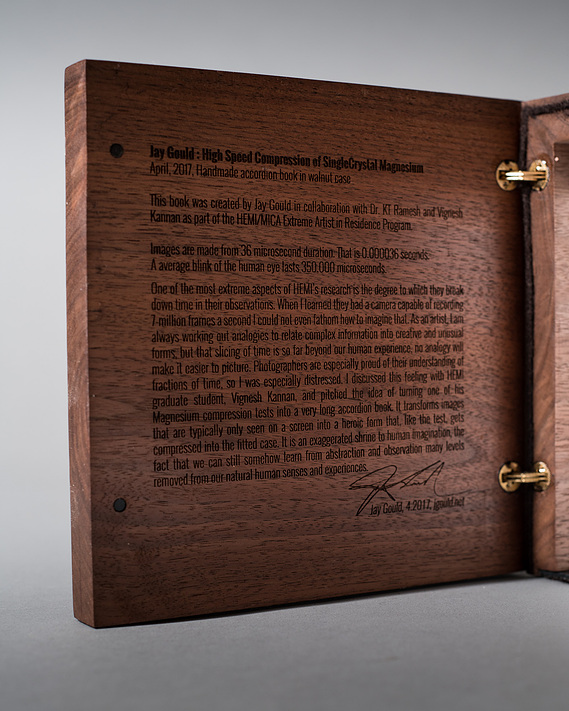 Jay Gould : High Speed Compression of SingleCrystal Magnesium
April, 2017, Handmade accordion book in walnut case
This book was created by Jay Gould in collaboration with Dr. KT Ramesh and Vignesh
Kannan as part of the HEMI/MICA Extreme Artist in Residence Program.
Images are made from 36 microsecond duration. That is 0.000036 seconds.
A average blink of the human eye lasts 350,000 microseconds.
One of the most extreme aspects of HEMI's research is the degree to which they break
down time in their observations. When I learned they had a camera capable of recording
7 million frames a second I could not even fathom how to imagine that. As an artist, I am
always working out analogies to relate complex information into creative and unusual
forms, but that slicing of time is so far beyond our human experience, no analogy will
make it easier to picture. Photographers are especially proud of their understanding of
fractions of time, so I was especially distressed. I discussed this feeling with HEMI
graduate student, Vignesh Kannan, and pitched the idea of turning one of his
Magnesium compression tests into a very long accordion book. It transforms images
that are typically only seen on a screen into a heroic form that, like the test, gets
compressed into the fitted case. It is an exaggerated shrine to human imagination, the
fact that we can still somehow learn from abstraction and observation many levels
removed from our natural human senses and experiences.
Jay Gould, 4.2017, jgould.net